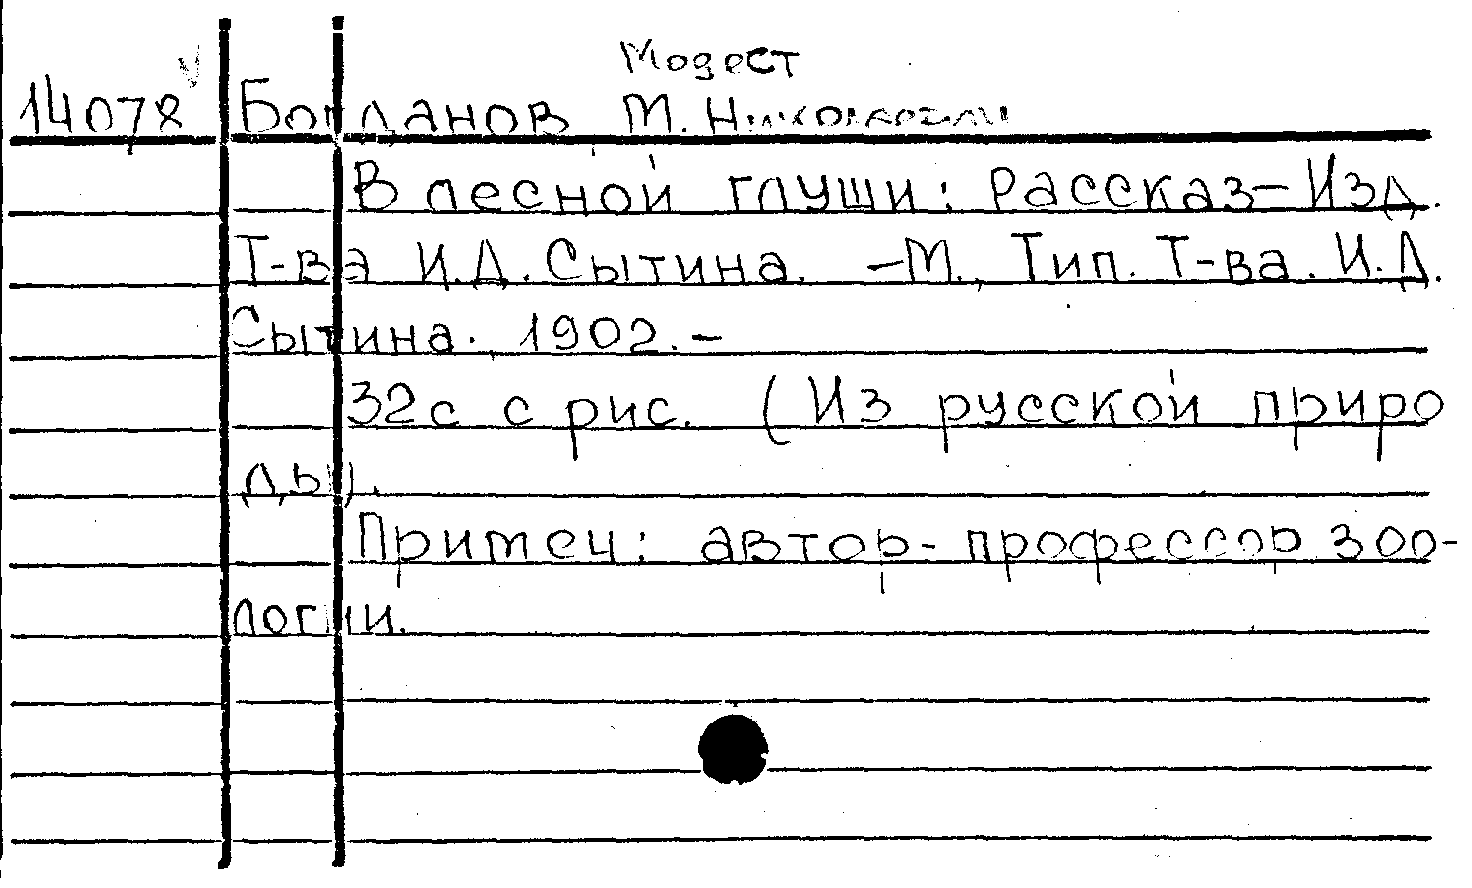 Модест
14078 Богданов М. Николаевич
В лесной глуши: Рассказ-Изд.
Т-ва И.Д. Сытина. -М., Тип. Т-ва. И.Д.
Сытина. 1902.-
32с с рис. (Из русской приро
ды).
Примеч: автор- профессор зоо-
логии.